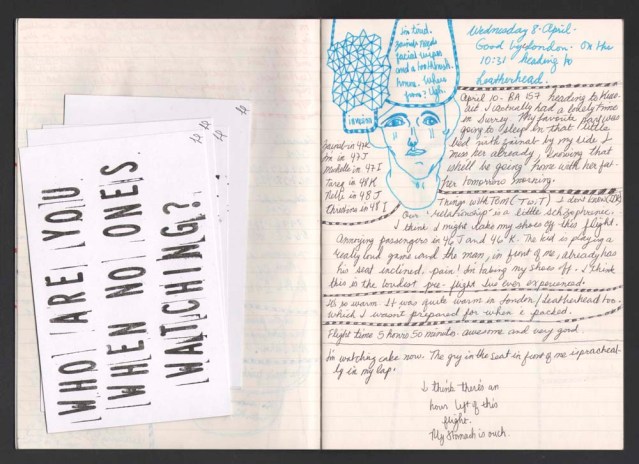 WHO ARE YOU
WHEN NO ONES
WATCHING?
im tired.
facial wipes
and a toothbrush.
hmmm. Where
from? Ugh.
Wednesday 8. April.
Good bye London. On the
10:31 heading to
Leatherhead.
April 10 - BA 157 heading to
but I actually had a lovely time
in Surrey. My favorite part was
going to sleep in that little
bed with Zainab by my side. I
miss her already. knowing that
she'll be going home with her fat-
her tomorrow morning.
Zainab in 47K
Im in 47 J
Michelle in 47 I
Tareq in 48K
Nelle in 48 J
Christina in 48 I
Things with TOM (T.W.T) I don't know
Our 'relationship' is a little schizophrenic.
I think I might take my shoes off this flight.
Annoying passengers in 46 J and 46 K. The kid is playing a
really loud game and the man, in front of me, already has
his seat inclined. pain! Im taking my shoes off. I think
this is the loudest pre-flight I've ever experienced.
It's so warm. It was quite warm in London/Leatherhead too.
which I wasn't prepared for when I packed.
Flight time 5 hours 50 minutes. awesome and very good.
Im watching cake now. The guy in the seat in front of me is practical-
ly in my lap.
I think there's an
hour left of this
flight.
My stomach is ouch.